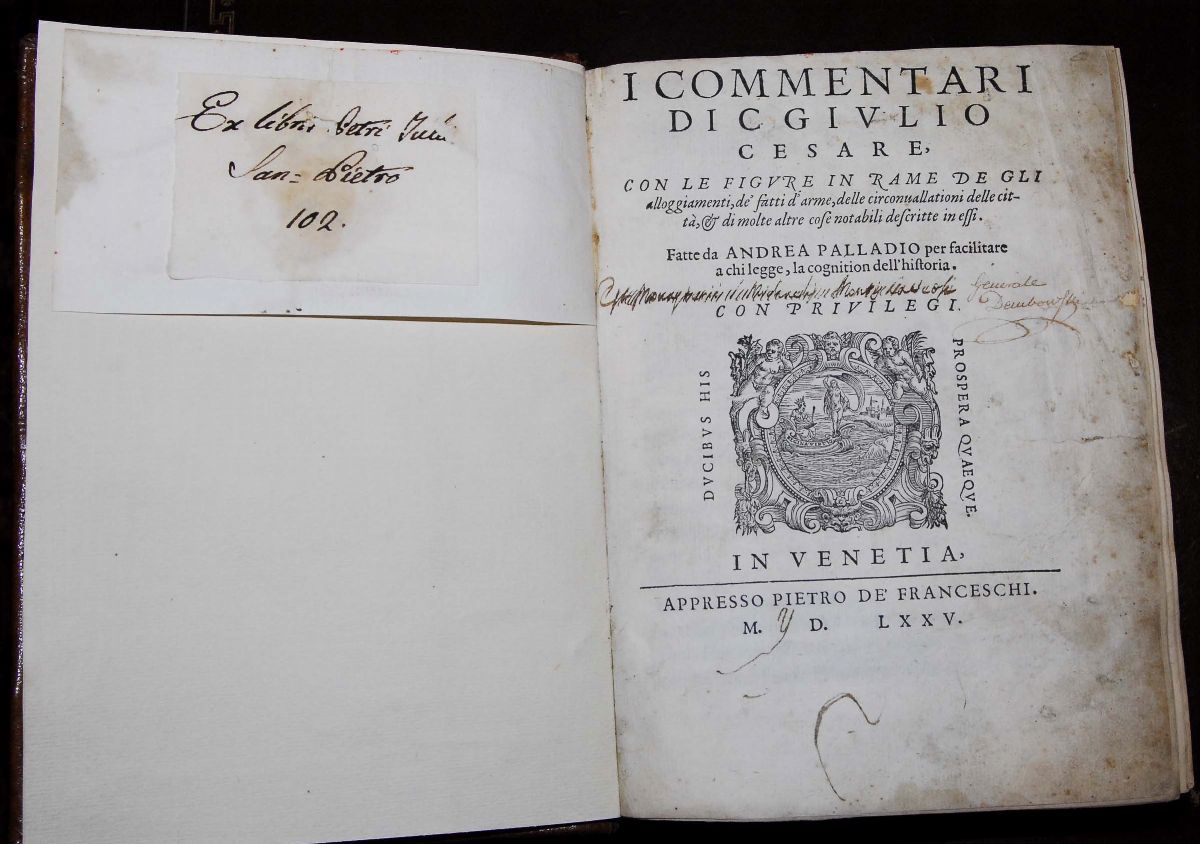 Ex libris Petri
San= Pietro
102.
I COMMENTARI
DI C GIVLIO
CESARE,
CON LE FIGVRE IN RAME DE GLI
alloggiamenti, de' fatti d'arme, delle circonuallationi delle cit-
tà, & di molte altre cose notabili descritte in essi.
Fatte da ANDREA PALLADIO per facilitare
a chi legge, la cognition dell'historia.
Generale
Dembowski
CON PRIVILEGI.
DVCIBVS HIS
PROSPERA QVAEQVE.
IN VENETIA,
APPRESSO PIETRO DE' FRANCESCHI.
M. D. LXXV.